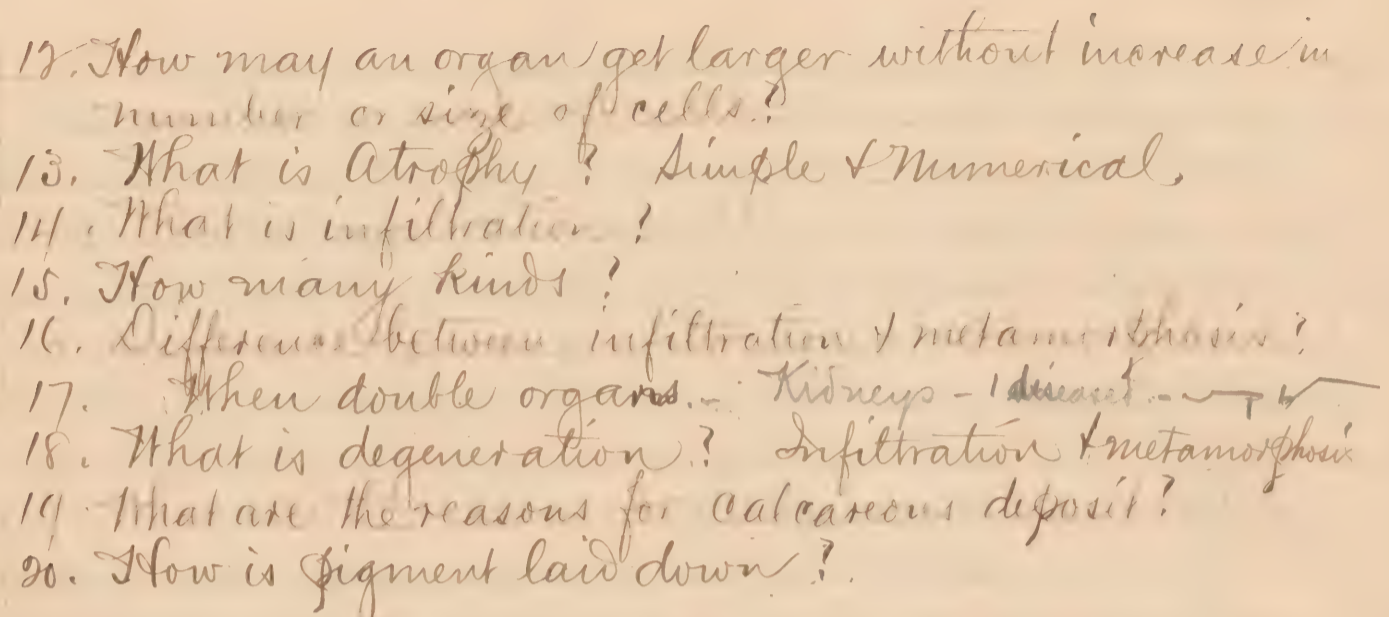 12. How may an organ get larger without increase in
number or size of cells?
13. What is Atrophy? Simple & Numerical,
14. What is infiltration?
15. How many kinds?
16. Difference between infiltration & metamorphosis?
17. When double organs. - Kidneys - 1 diseased -
18. What is degeneration? Infiltration & metamorphosis
19. What are the reasons for Calcareous deposit?
20. How is pigment laid down?